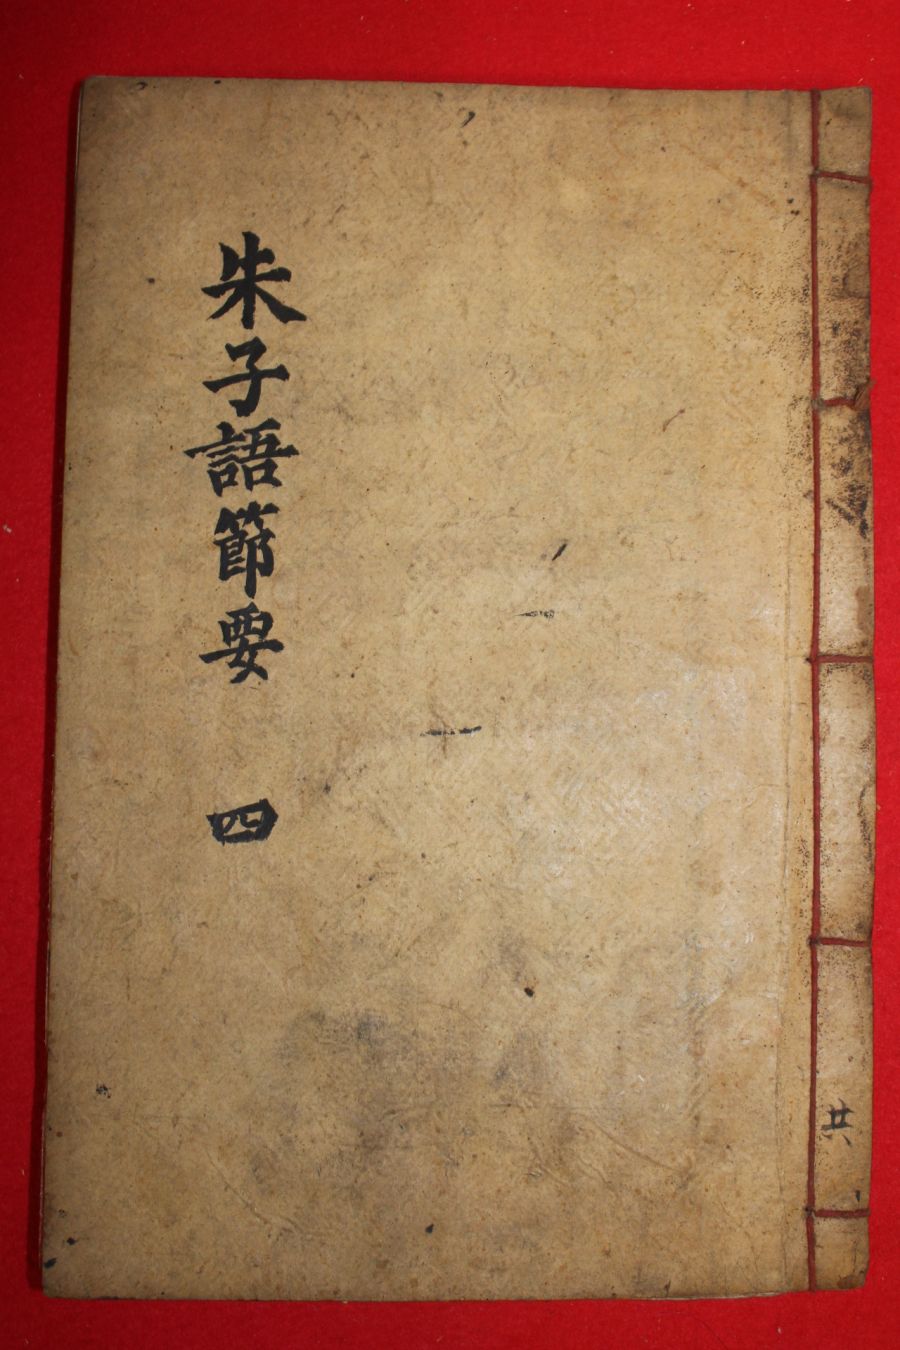 共
朱子語節要 四